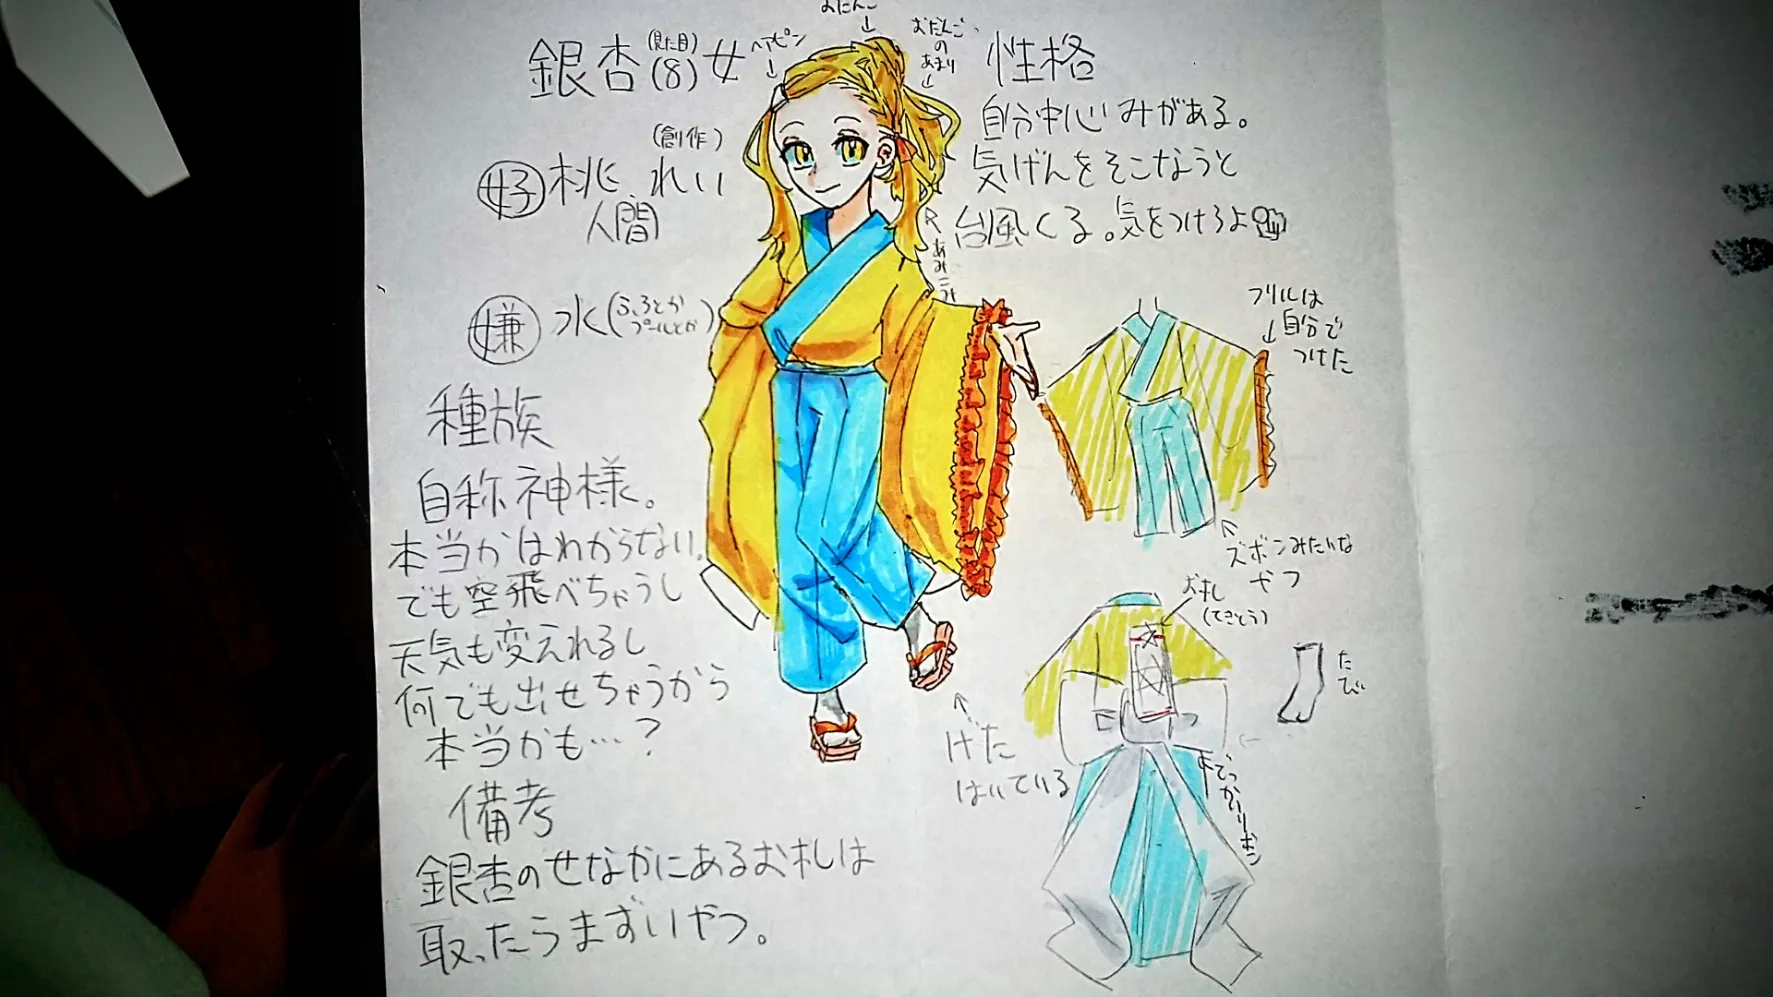 おだんご
銀杏(8)女
(見た目)
ヘアピン
おだんご
の
あまり
性格
自分中心みがある。
気げんをそこなうと
台風くる。気をつけろよ
(創作)
好 桃、れい
人間
嫌 水(ふろとか
プールとか)
あみこみ
種族
自称神様。
本当かはわからない。
でも空飛べちゃうし
天気も変えれるし
何でも出せちゃうから
本当かも…?
備考
銀杏のせなかにあるお札は
取ったらまずいやつ。
フリルは
自分で
つけた
ズボンみたいな
やつ
お札
(てきとう)
たび
げた
はいている
でっかいリボン